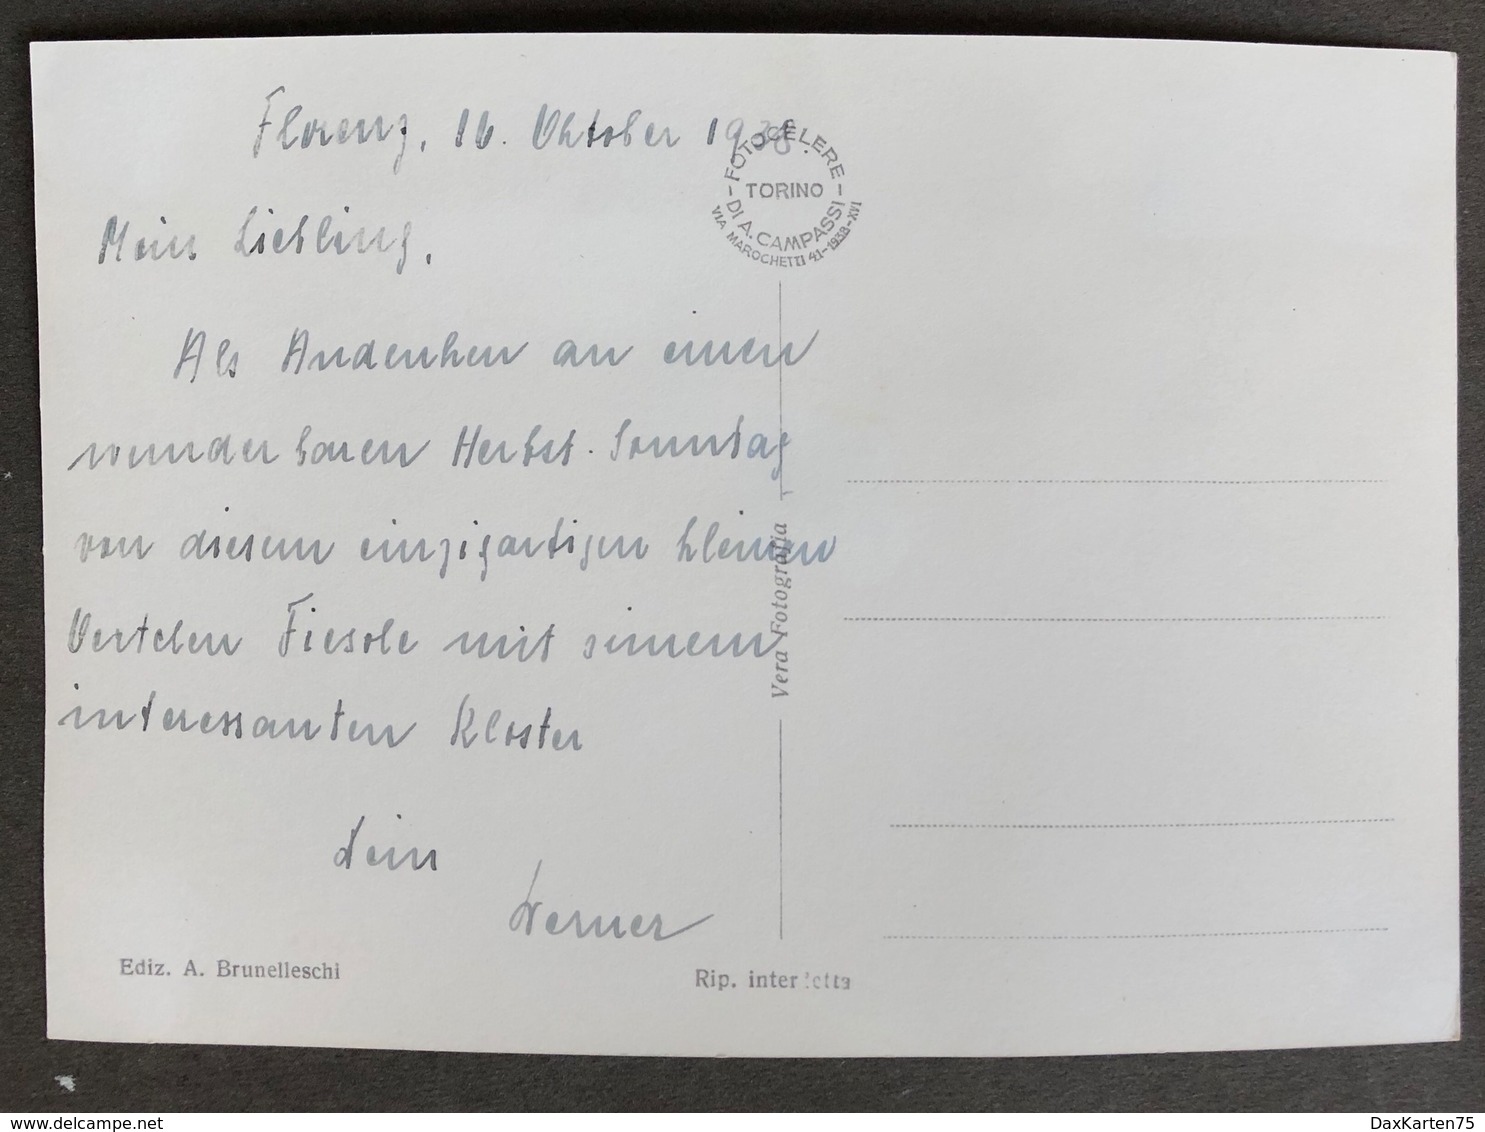 Florenz, 16. Oktober 1938.
Mein Liebling,
Als Andenken an einen
wunderbaren Herbst-Sonntag
von diesem einzigartigen kleinen
Oertchen Fiesole mit seinem
interessanten Kloster
dein
Werner
Ediz. A. Brunelleschi
- FOTOCELERE -
TORINO
DI A. CAMPASSI
VIA MAROCHETTI 41-1938-XVI
Vera Fotografia
Rip. interdetta
delcampe.net
DaxKarten75